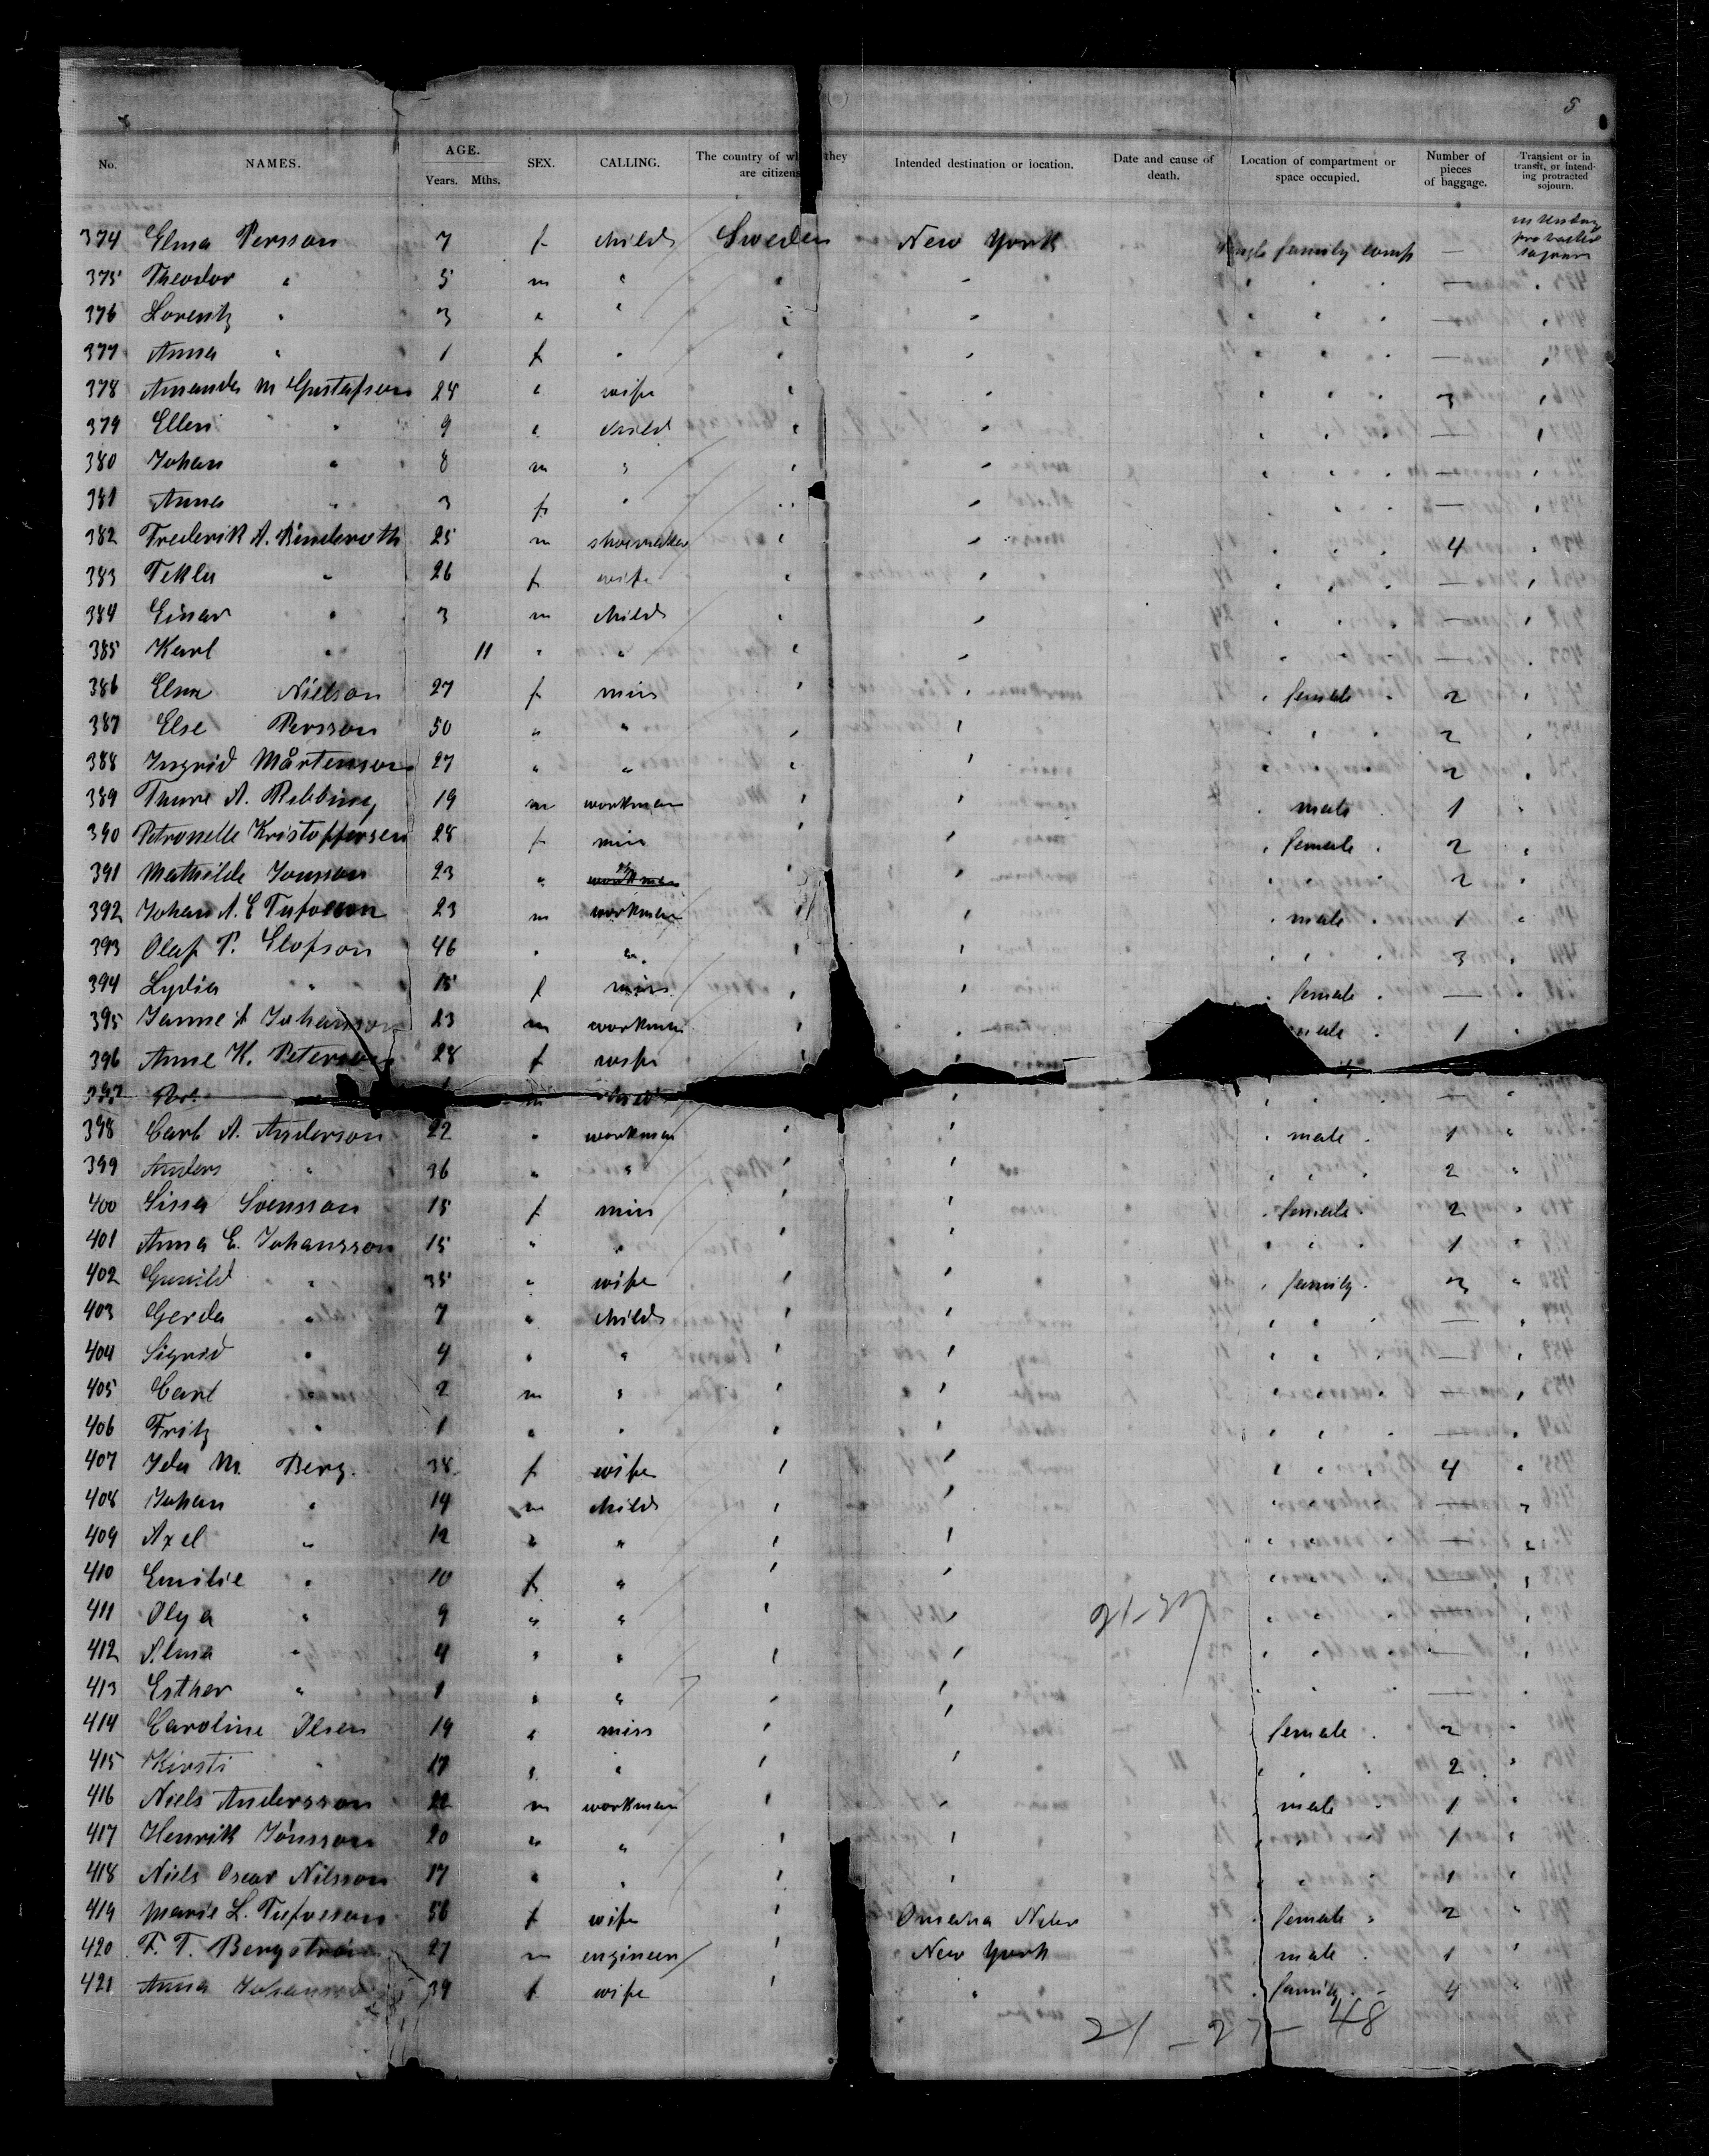 5
No. NAMES. AGE. Years. Mths. SEX. CALLING. The country of wh they are citizens Intended destination or location. Date and cause of death. Location of compartment or space occupied. Number of pieces of baggage. Transient or in transit, or intending protracted sojourn.
374 Elma Persson 7 f child Sweden New York family comp —
375 Theodor " 5 m " " " " " " — "
376 Lorentz " 3 " " " " " " " — "
377 Anna " 1 f " " " " " " — "
378 Amanda M Gustafson 28 " wife " " " " " 3 "
379 Ellen " 9 " child " " " " " — "
380 Johan " 8 m " " " " " " — "
381 Anna " 3 f " " " " " " — "
382 Frederik A. 25 m shoemaker " " " " " 4 "
383 Tekla " 26 f wife " " " " " — "
384 Einar " 3 m child " " " " " — "
385 Karl " 11 " " " " " " " — "
386 Elna Nielson 27 f miss " " " female " 2 "
387 Else Persson 50 " " " " " " " 2 "
388 Ingrid Mårtenson 27 " " " " " " " 2 "
389 Thure A. Ribbing 19 m workman " " " male " 1 "
390 Petronelle Kristoffersen 28 f miss " " " female " 2 "
391 Mathilde Jonsson 23 " " " " " " 2 "
392 Johan A. E Tufveson 23 m workman " " " male " 1 "
393 Olaf P. Elofson 46 " " " " " " " 3 "
394 Lydia " 15 f miss " " " female " — "
395 Janne A Johanson 23 m workman " " male " 1 "
396 Anne K. Peterson 28 f wife " "
397 m child " " " " — "
398 Carl A. Anderson 22 " workman " " " male " 1 "
399 Anders " 36 " " " " " " " 2 "
400 Sissa Svensson 15 f miss " " " female " 2 "
401 Anna E. Johansson 15 " " " " " " " 1 "
402 Gunild " 35 " wife " " " family " 3 "
403 Gerda " 7 " child " " " " " — "
404 Sigrid " 4 " " " " " " " — "
405 Carl " 2 m " " " " " " — "
406 Fritz " 1 " " " " " " " — "
407 Ida M. Berg. 38 f wife " " " " " 4 "
408 Johan " 14 m child " " " " " — "
409 Axel " 12 " " " " " " " — "
410 Emilie " 10 f " " " " " " — "
411 Olga " 9 " " " " " " " — "
412 Alma " 4 " " " " " " " — "
413 Esther " 1 " " " " " " " — "
414 Caroline Olsen 19 " miss " " female " 2 "
415 Kirsti " 17 " " " " " " " 2 "
416 Niels Andersson 22 m workman " " male " 1 "
417 Henrik Jönsson 20 " " " " " " " 1 "
418 Niels Oscar Nilsson 17 " " " " " " " 1 "
419 Marie L. Tufveson 56 f wife " Omaha Nebr " female " 2 "
420 F. T. Bergström 27 m engineer " New York male " 1 "
421 Anna Johansson 39 f wife " " " family " 4 "
21 – 27 – 48